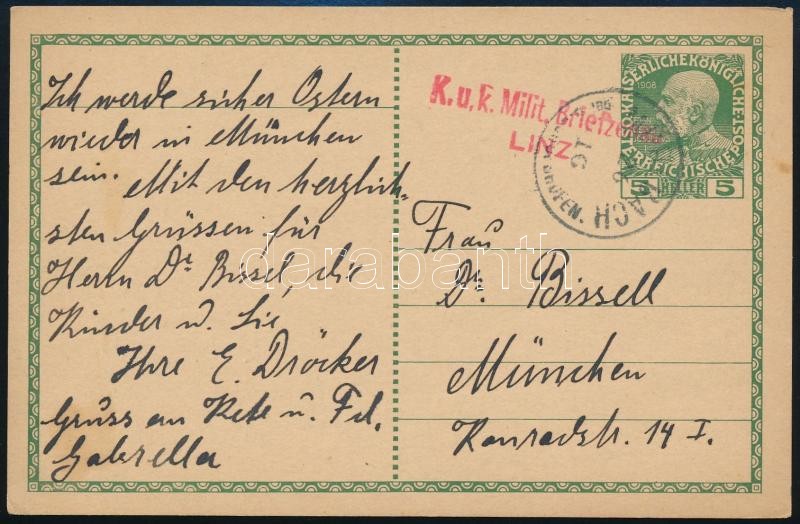 Ich werde sicher Ostern
wieder in München
sein. Mit den herzlich-
sten Grüssen für
Herrn Dr Bissel, die
Kinder u. Sie
Ihre E. Dröcker
Gruss an Kete u. Frl.
Gabriella
K.u.k. Milit. Briefzensur
LINZ
1908
5 HELLER 5
Frau
Dr. Bissell
München
Konradstr. 14 I.
darabanth